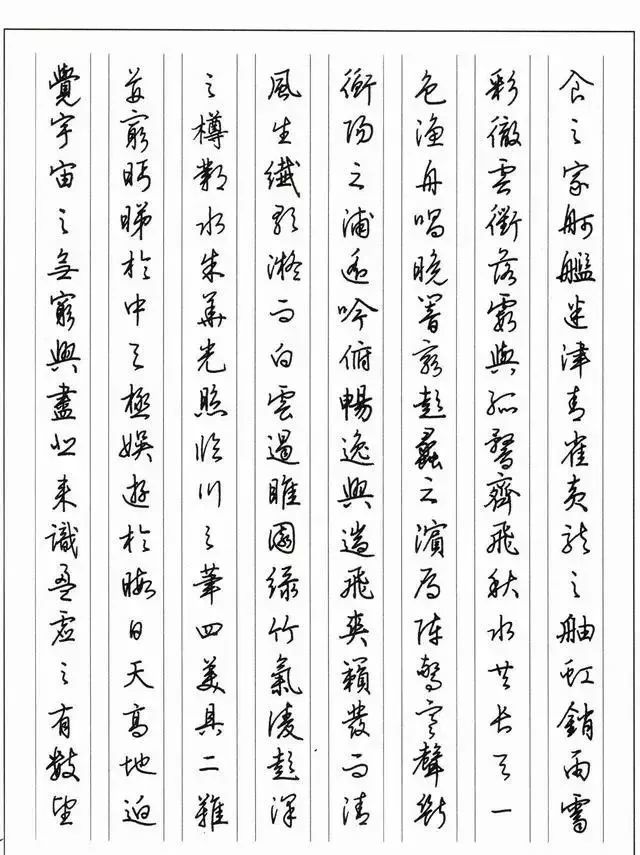 食之家舸艦迷津青雀黃龍之舳虹銷雨霽
彩徹雲衢落霞與孤鶩齊飛秋水共長天一
色漁舟唱晚響窮彭蠡之濱雁陣驚寒聲斷
衡陽之浦遙吟俯暢逸興遄飛爽籟發而清
風生纖歌凝而白雲遏睢園綠竹氣淩彭澤
之樽鄴水朱華光照臨川之筆四美具二難
並窮眄睇於中天極娛遊於暇日天高地迥
覺宇宙之無窮興盡悲來識盈虛之有數望